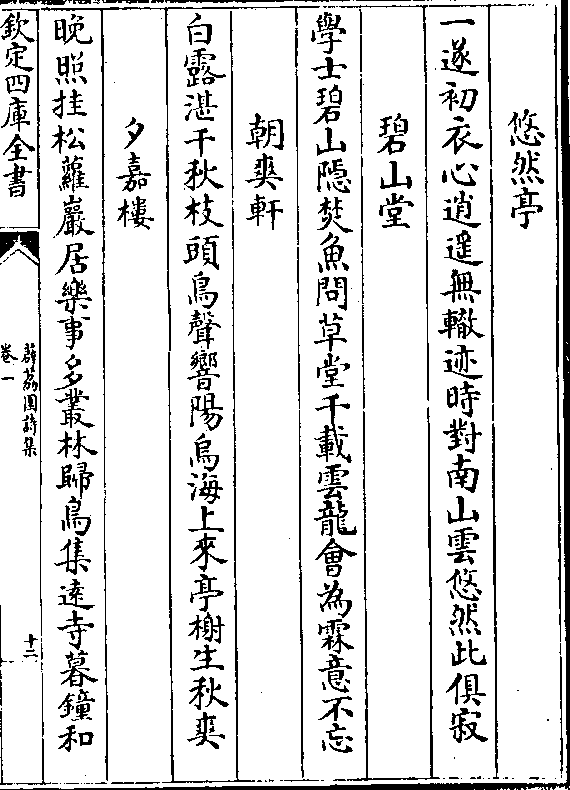 悠然亭
一遂初衣心逍遥無轍迹時對南山雲悠然此俱寂
碧山堂
學士碧山隱焚魚問草堂千載雲龍會為霖意不忘
朝爽軒
白露湛千秋枝頭鳥聲響陽烏海上來亭榭生秋爽
夕嘉樓
晚照挂松蘿巖居樂事多叢林歸鳥集逺寺暮鐘和
欽定四庫全書
薜荔園詩集
卷一
十二